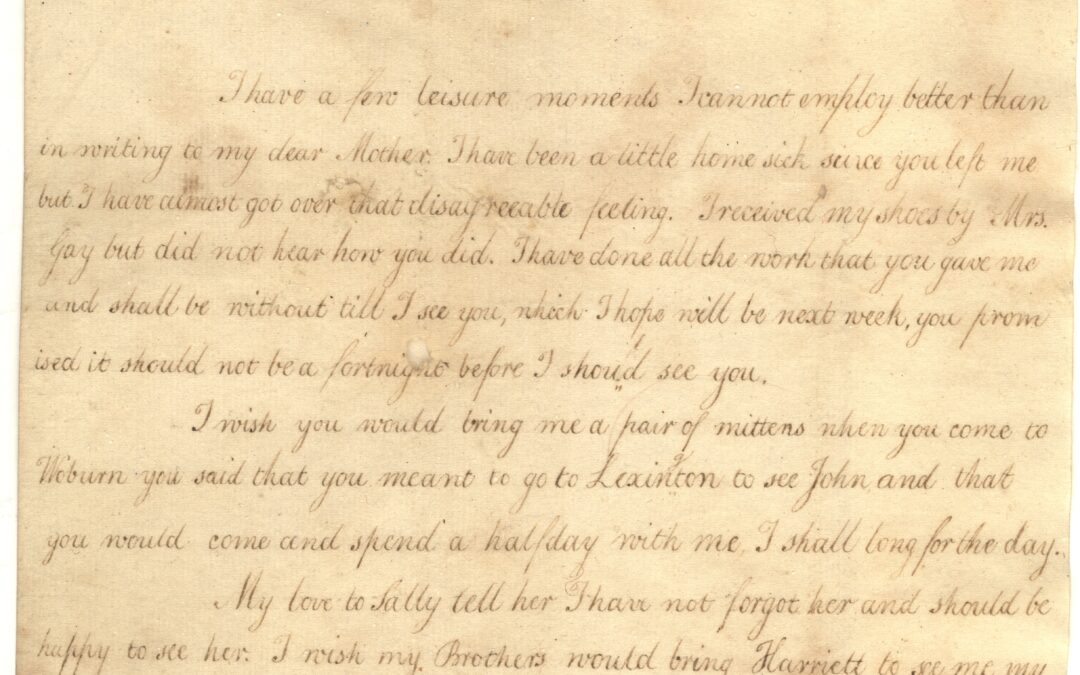 I have a few leisure moments I cannot employ better than
in writing to my dear Mother. I have been a little home sick since you left me
but I have almost got over that disagreeable feeling. I received my shoes by Mrs.
Gay but did not hear how you did. I have done all the work that you gave me
and shall be without till I see you, which I hope will be next week, you prom
ised it should not be a fortnight before I should see you.
I wish you would bring me a pair of mittens when you come to
Woburn you said that you meant to go to Lexinton to see John and that
you would come and spend a half day with me, I shall long for the day.
My love to Sally tell her I have not forgot her and should be
happy to see her. I wish my Brothers would bring Harriett to see me my